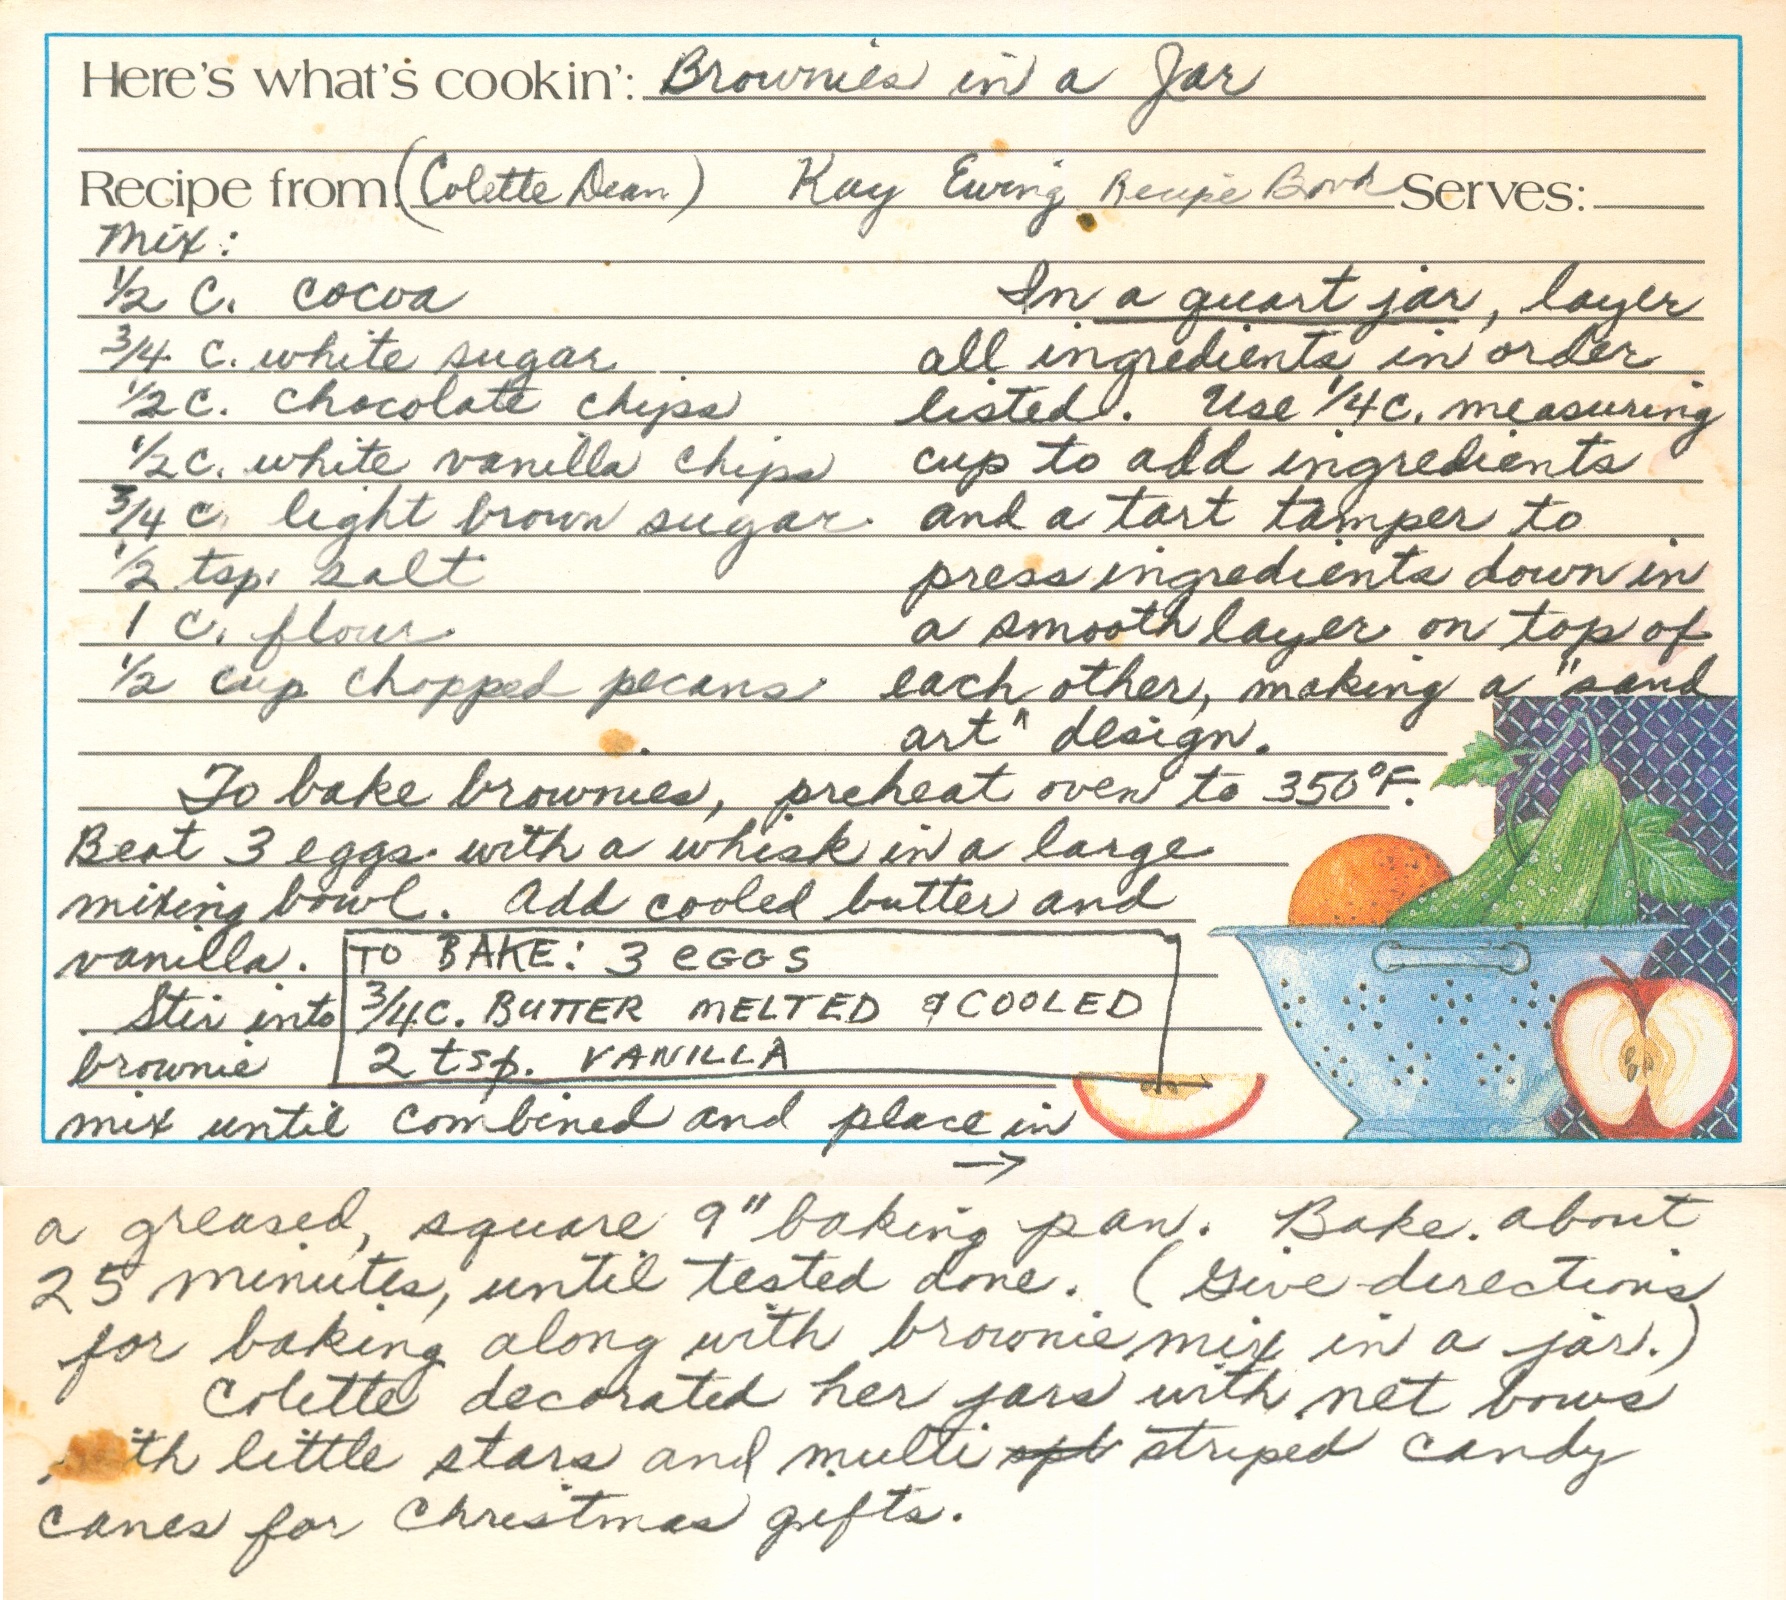 Here's what's cookin': Brownies in a Jar
Recipe from: (Colette Dean) Kay Ewing Recipe Book Serves:
Mix:
1/2 C. cocoa
3/4 c. white sugar
1/2 c. chocolate chips
1/2 c. white vanilla chips
3/4 c. light brown sugar
1/2 tsp. salt
1 c. flour
1/2 cup chopped pecans
In a quart jar, layer
all ingredients in order
listed. Use 1/4 c. measuring
cup to add ingredients
and a tart tamper to
press ingredients down in
a smooth layer on top of
each other, making a "sand
art" design.
To bake brownies, preheat oven to 350°F.
Beat 3 eggs with a whisk in a large
mixing bowl. Add cooled butter and
vanilla.
TO BAKE: 3 eGGS
3/4 c. BUTTER MELTED & COOLED
2 tsp. VANILLA
Stir into
brownie
mix until combined and place in
→
a greased, square 9" baking pan. Bake about
25 minutes, until tested done. (Give directions
for baking along with brownie mix in a jar.)
Colette decorated her jars with net bows
th little stars and multi striped candy
canes for Christmas gifts.